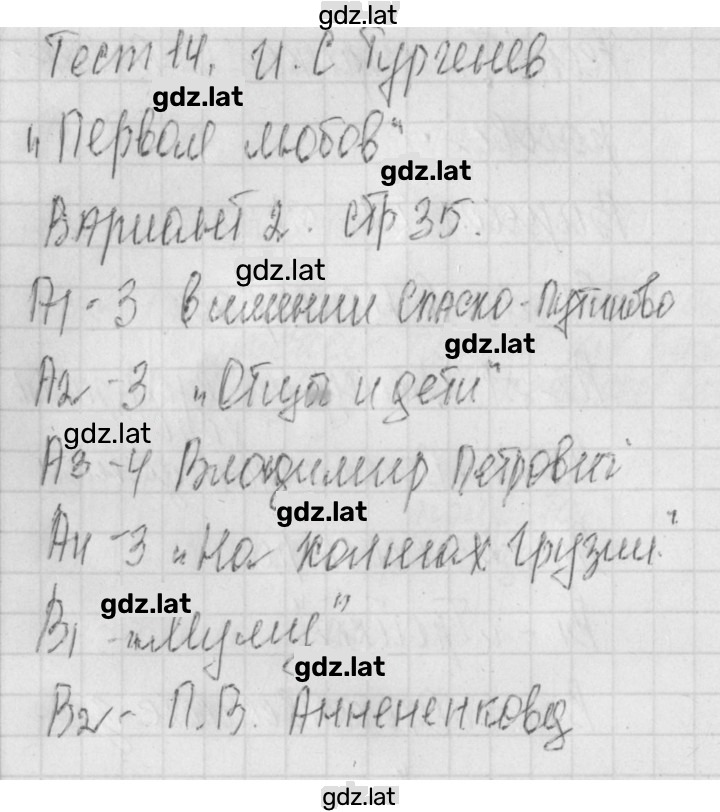 gdz.lat
Тест 14. И. С Тургенев
gdz.lat
"Первая любов"
gdz.lat
Вариант 2. стр 35.
gdz.lat
А1 - 3 в имении Спаско-Лутиново
gdz.lat
А2 - 3 "Отцы и дети"
gdz.lat
А3 - 4 Владимир Петрович
gdz.lat
А4 - 3 "На холмах Грузии"
gdz.lat
В1 - "Муму"
gdz.lat
В2 - П.В. Анненкова
gdz.lat